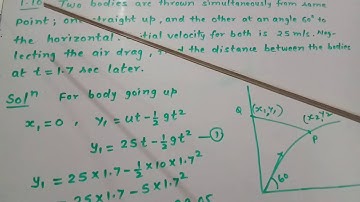 1.10 Two bodies are thrown simultaneously from same
point; one straight up, and the other at an angle 60° to
the horizontal. initial velocity for both is 25 m/s. Neg-
lecting the air drag, find the distance between the bodies
at t = 1.7 sec later.
Solⁿ For body going up
x₁=0, y₁ = ut - ½gt²
y₁ = 25t - ½gt² —①
y₁ = 25×1.7 - ½×10×1.7²
= 25×1.7 - 5×1.7²
Q (x₁,y₁) (x₂,y₂)
P
60